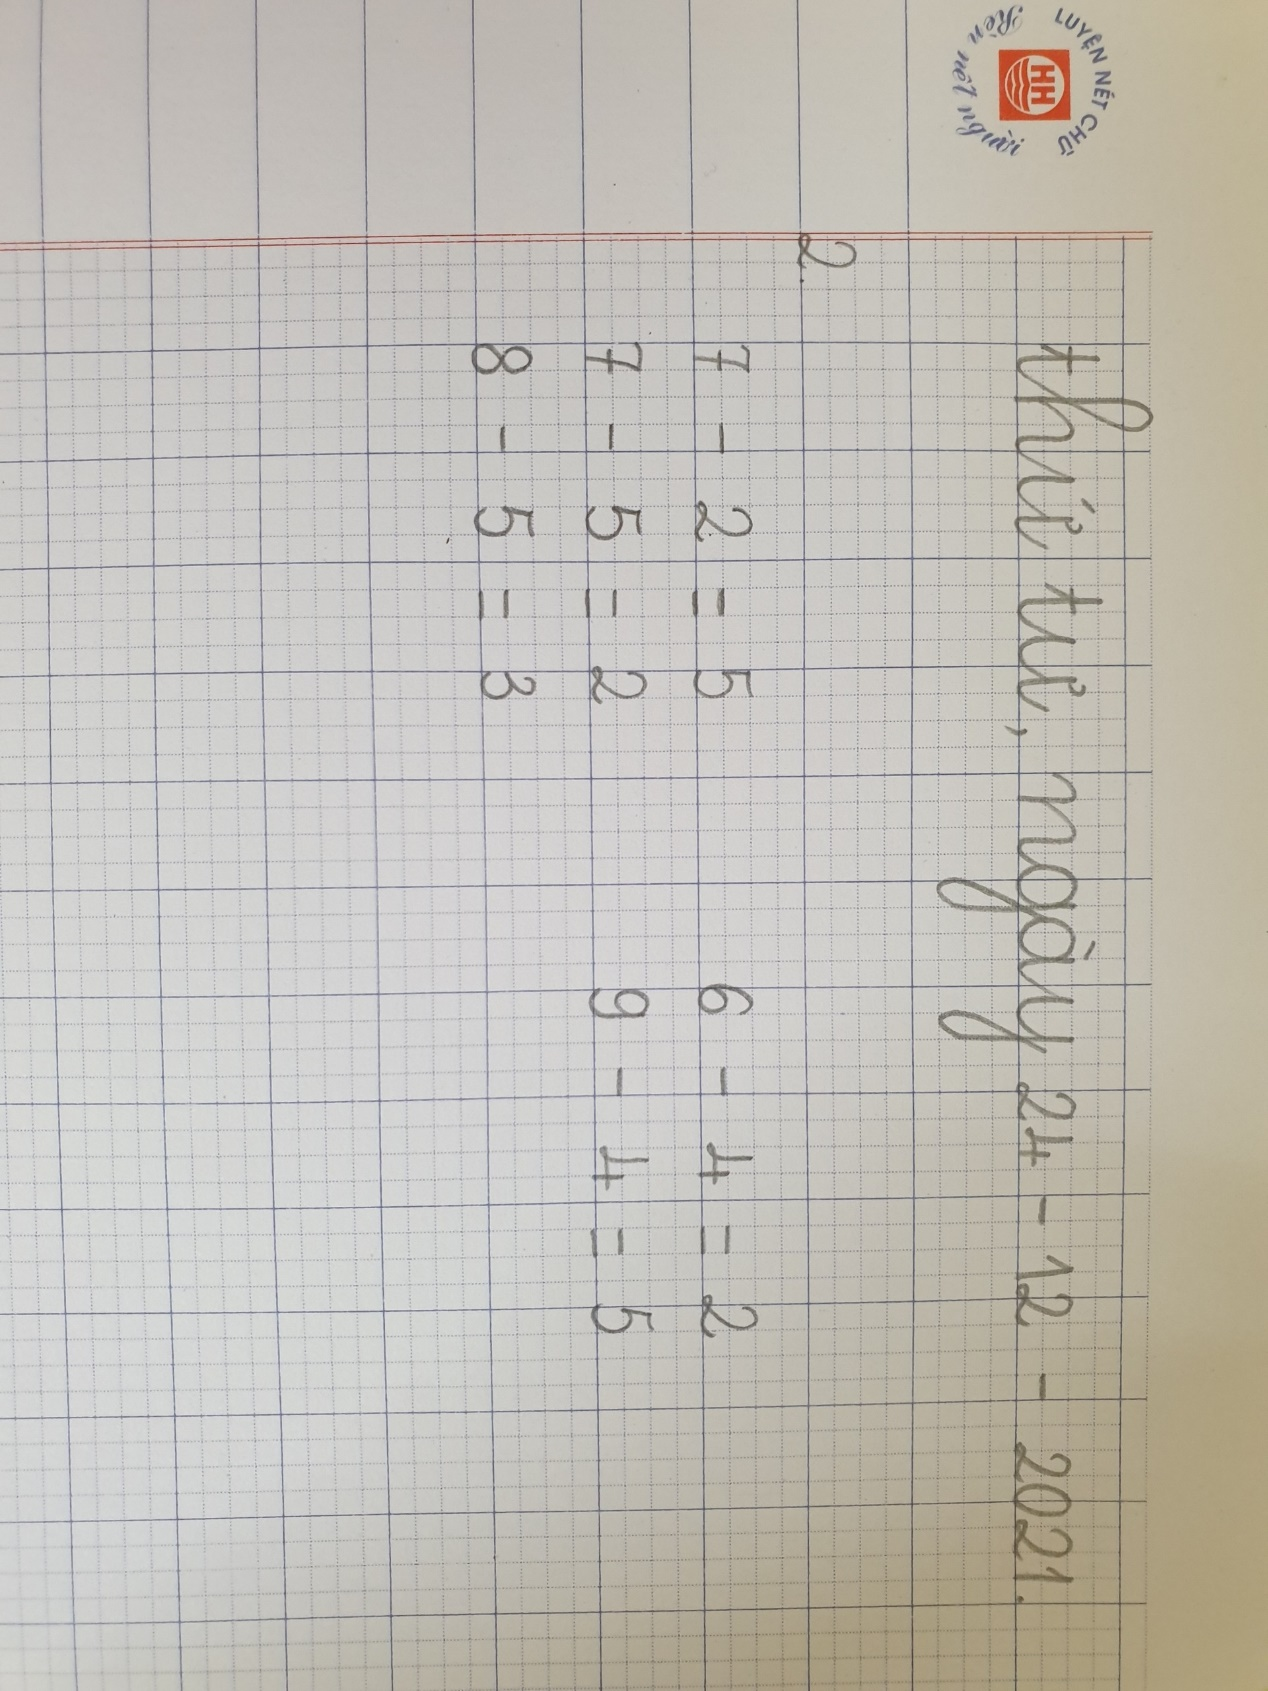 LUYỆN NÉT CHỮ
HH
Rèn nết người
thứ tư, ngày 24 - 12 - 2021.
2.
7 - 2 = 5 6 - 4 = 2
7 - 5 = 2 9 - 4 = 5
8 - 5 = 3